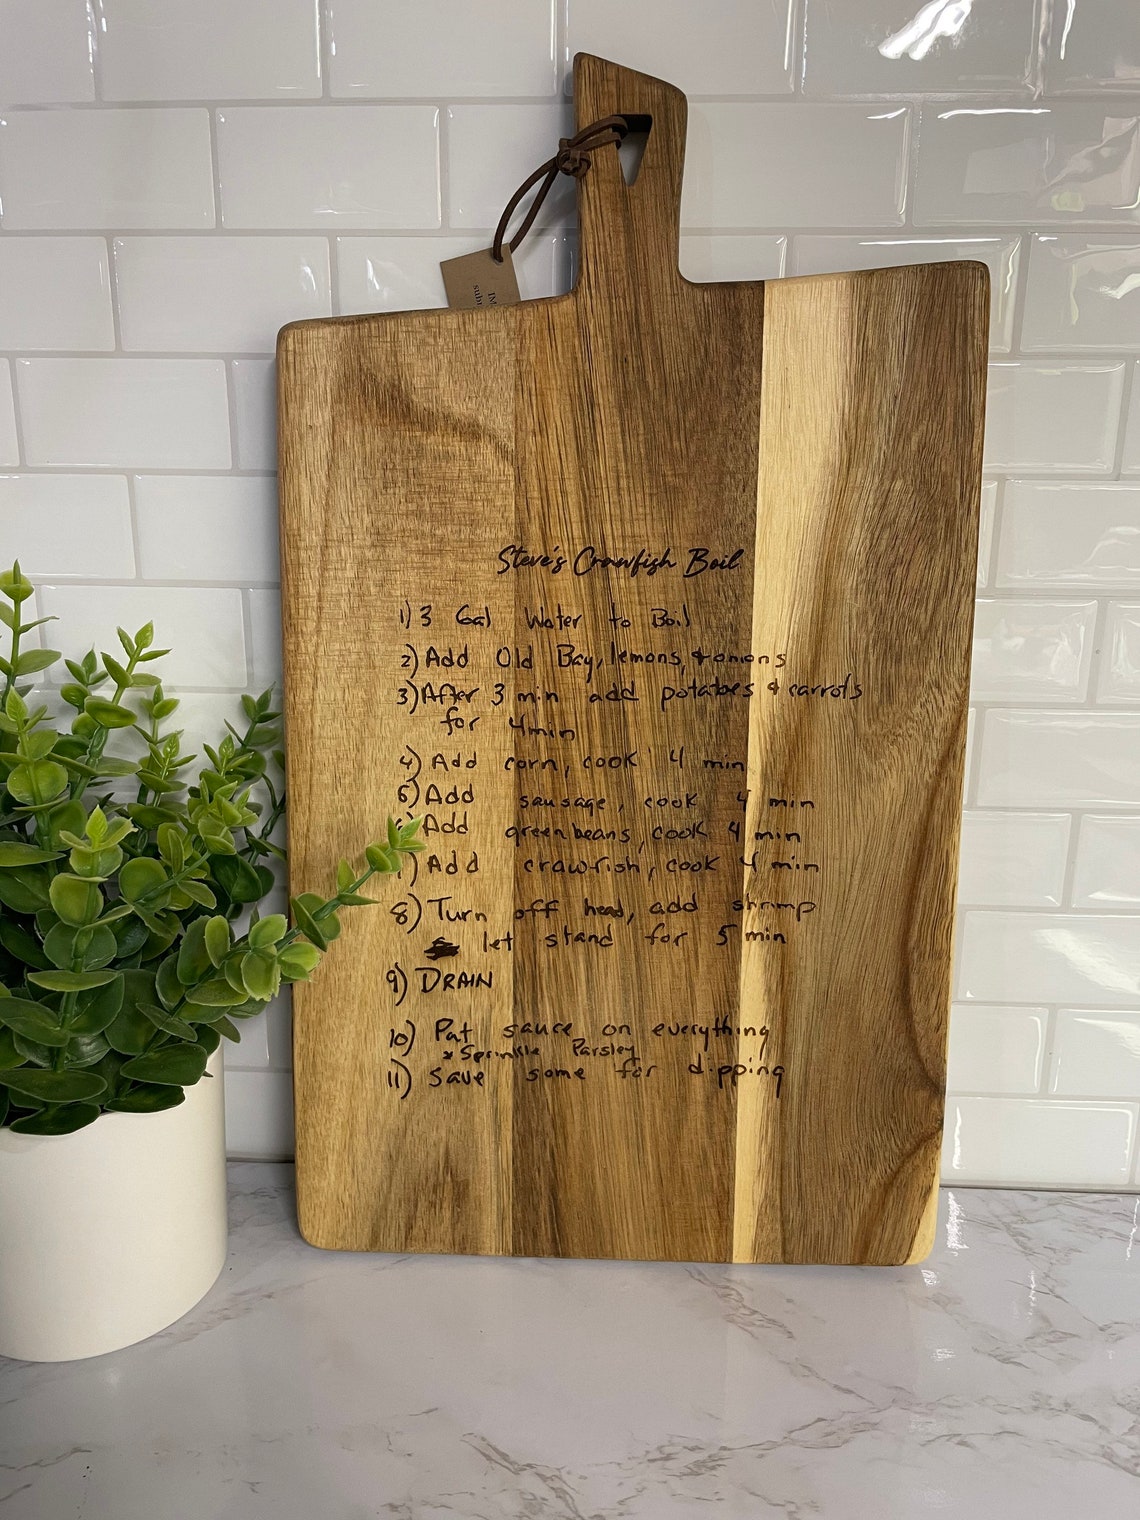 Steve's Crawfish Boil
1) 3 Gal Water to Boil
2) Add Old Bay, lemons, & onions
3) After 3 min add potatoes & carrots
for 4min
4) Add corn, cook 4 min
5) Add sausage, cook 4 min
Add green beans, cook 4 min
) Add crawfish, cook 4 min
8) Turn off head, add shrimp
let stand for 5 min
9) DRAIN
10) Pat sauce on everything
* Sprinkle Parsley
11) Save some for dipping